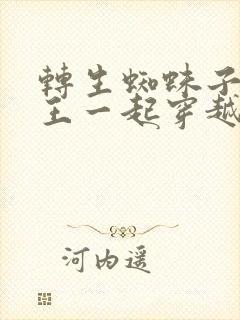 轉生蜘蛛子
王一起穿越
河內遥